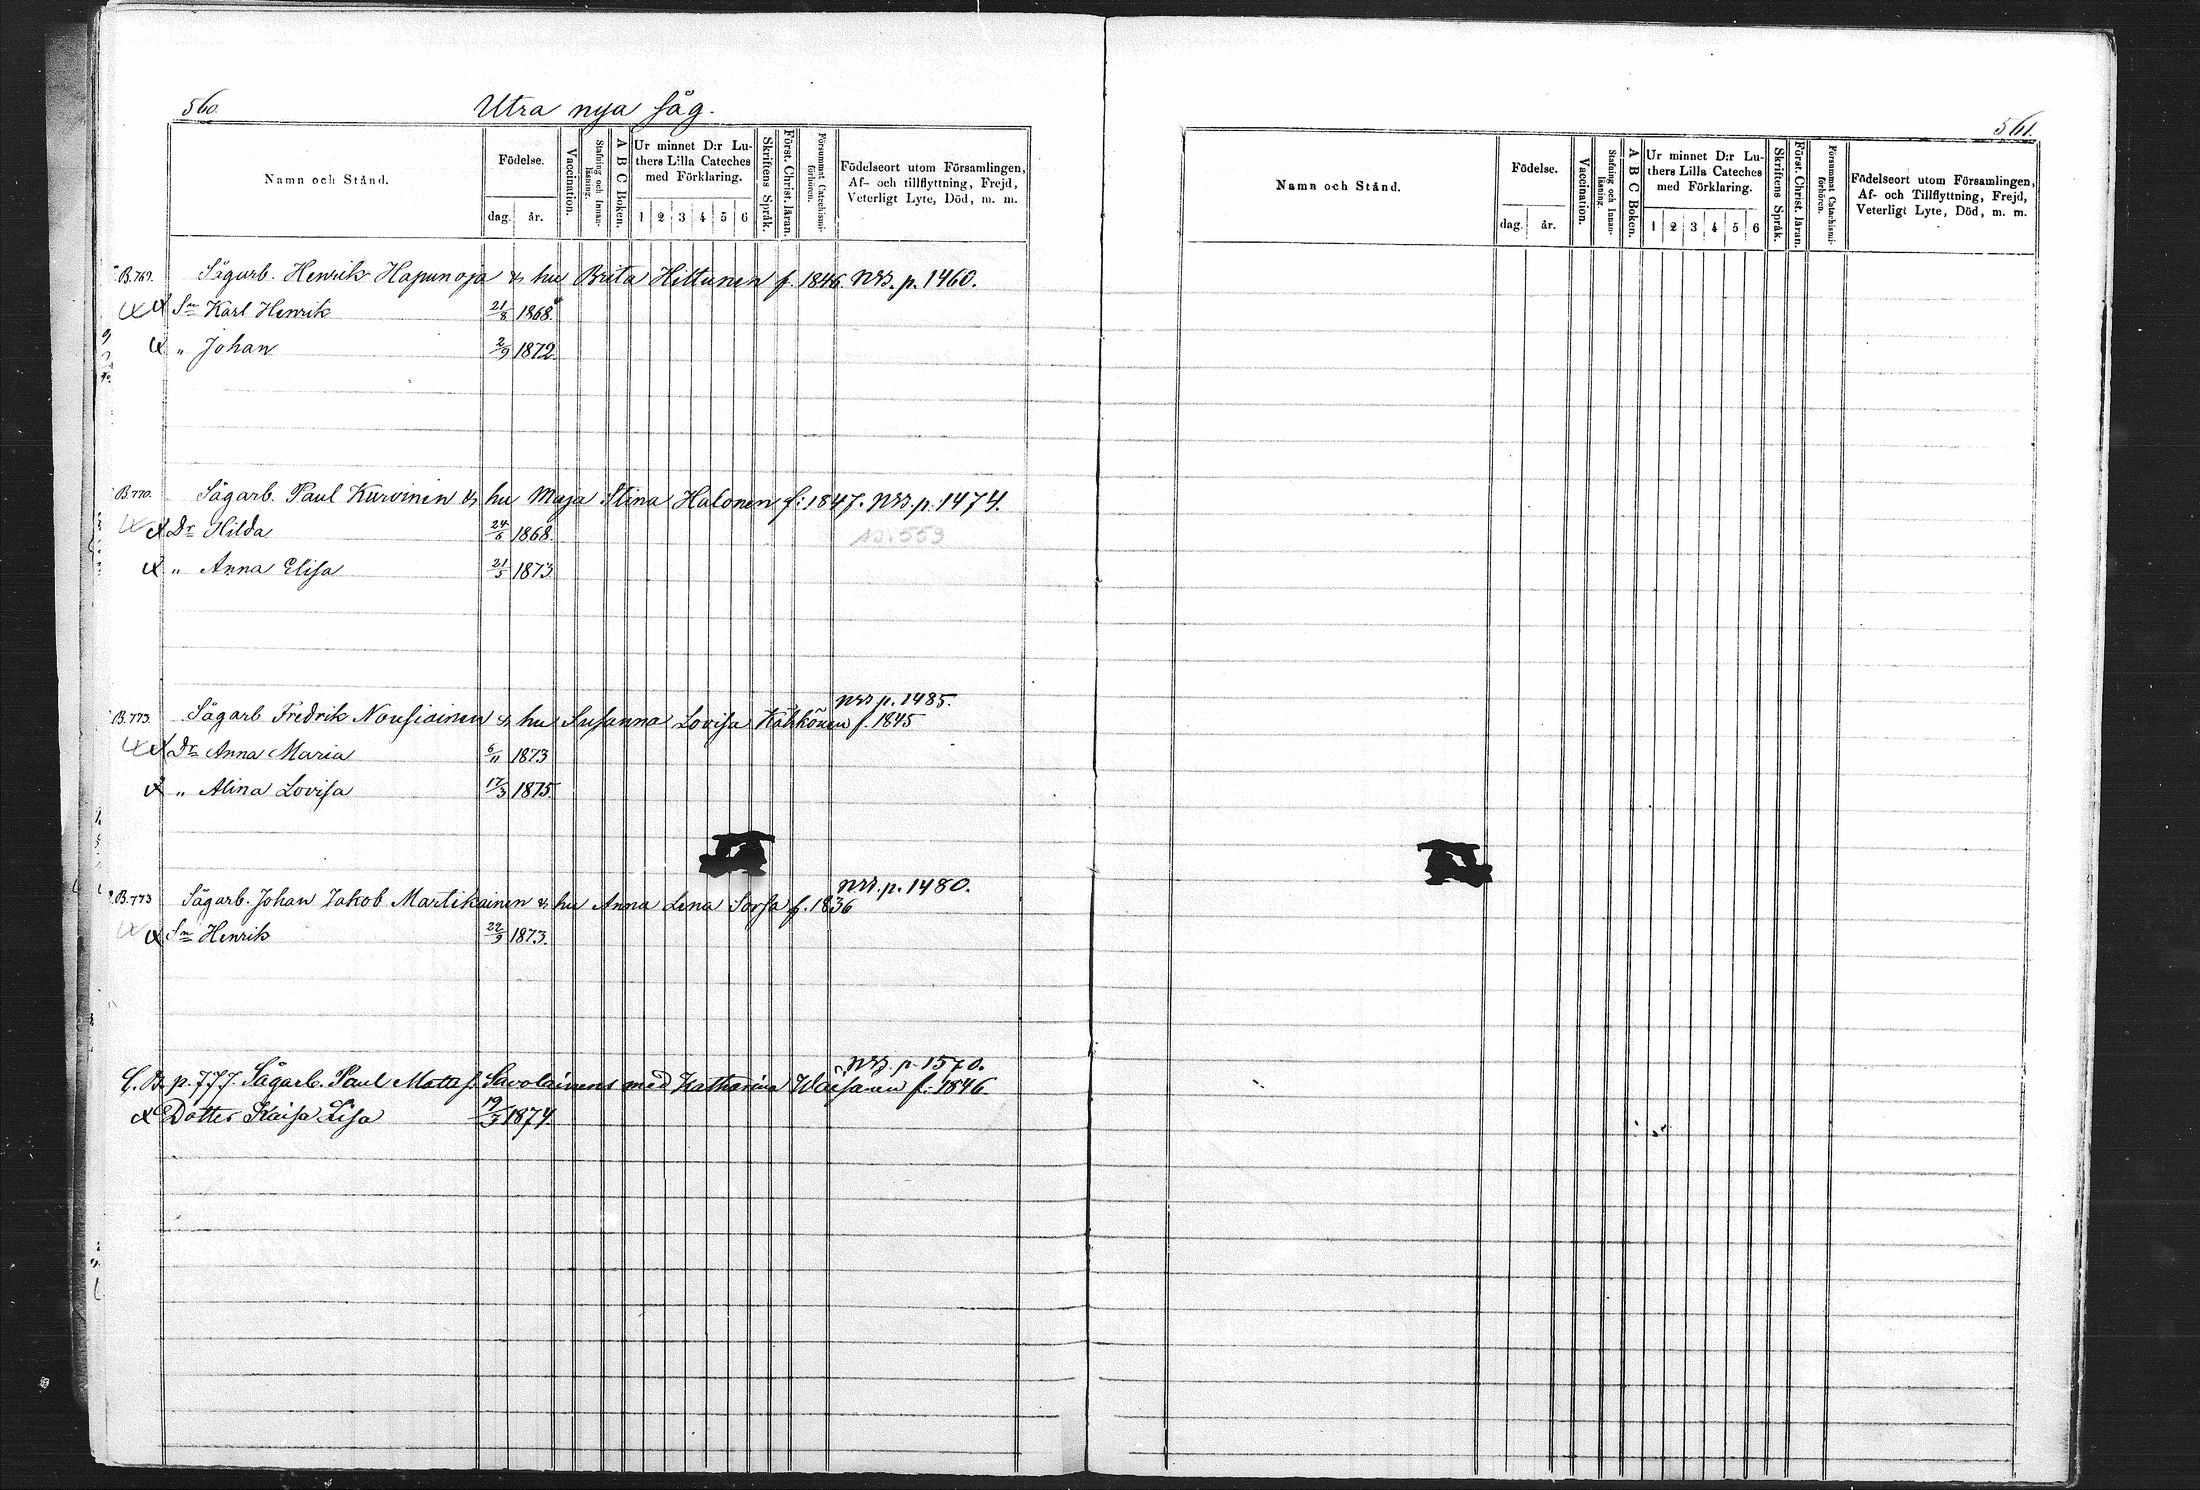 560.
Utra nya såg.
Namn och Stånd.
Födelse.
dag. år.
Vaccination.
Stafning och Innanläsning.
A B C Boken.
Ur minnet D:r Luthers Lilla Cateches med Förklaring.
1 2 3 4 5 6
Skriftens Språk.
Först. Christ. läran.
Försummat Catechismiförhören.
Födelseort utom Församlingen,
Af- och tillflyttning, Frejd,
Veterligt Lyte, Död, m. m.
B. 769. Sågarb. Henrik Hapunoja & hu Brita Hiltunen f. 1846. p. 1460.
Sn Karl Henrik 21/8 1868.
" Johan 2/9 1872.
B. 770. Sågarb. Paul Kurvinen & hu Maja Stina Halonen f: 1847. p. 1474.
Dr Hilda 24/6 1868.
" Anna Elisa 21/5 1873.
p. 1485.
B. 773. Sågarb Fredrik Nousiainen & hu Susanna Lovisa Kähkönen f. 1845
Dr Anna Maria 6/11 1873
" Alina Lovisa 17/3 1875.
p. 1480.
B. 773 Sågarb. Johan Jakob Martikainen & hu Anna Lena Sorsa f. 1836
Sn Henrik 22/9 1873.
p. 1570.
B. p. 777. Sågarb. Paul Matts. Savolainens med Katharina Waisanen f: 1846.
Dotter Kaisa Lisa 19/3 1874.
561.
Namn och Stånd.
Födelse.
dag. år.
Vaccination.
Stafning och Innanläsning.
A B C Boken.
Ur minnet D:r Luthers Lilla Cateches med Förklaring.
1 2 3 4 5 6
Skriftens Språk.
Först. Christ. läran.
Försummat Catechismiförhören.
Födelseort utom Församlingen,
Af- och Tillflyttning, Frejd,
Veterligt Lyte, Död, m. m.